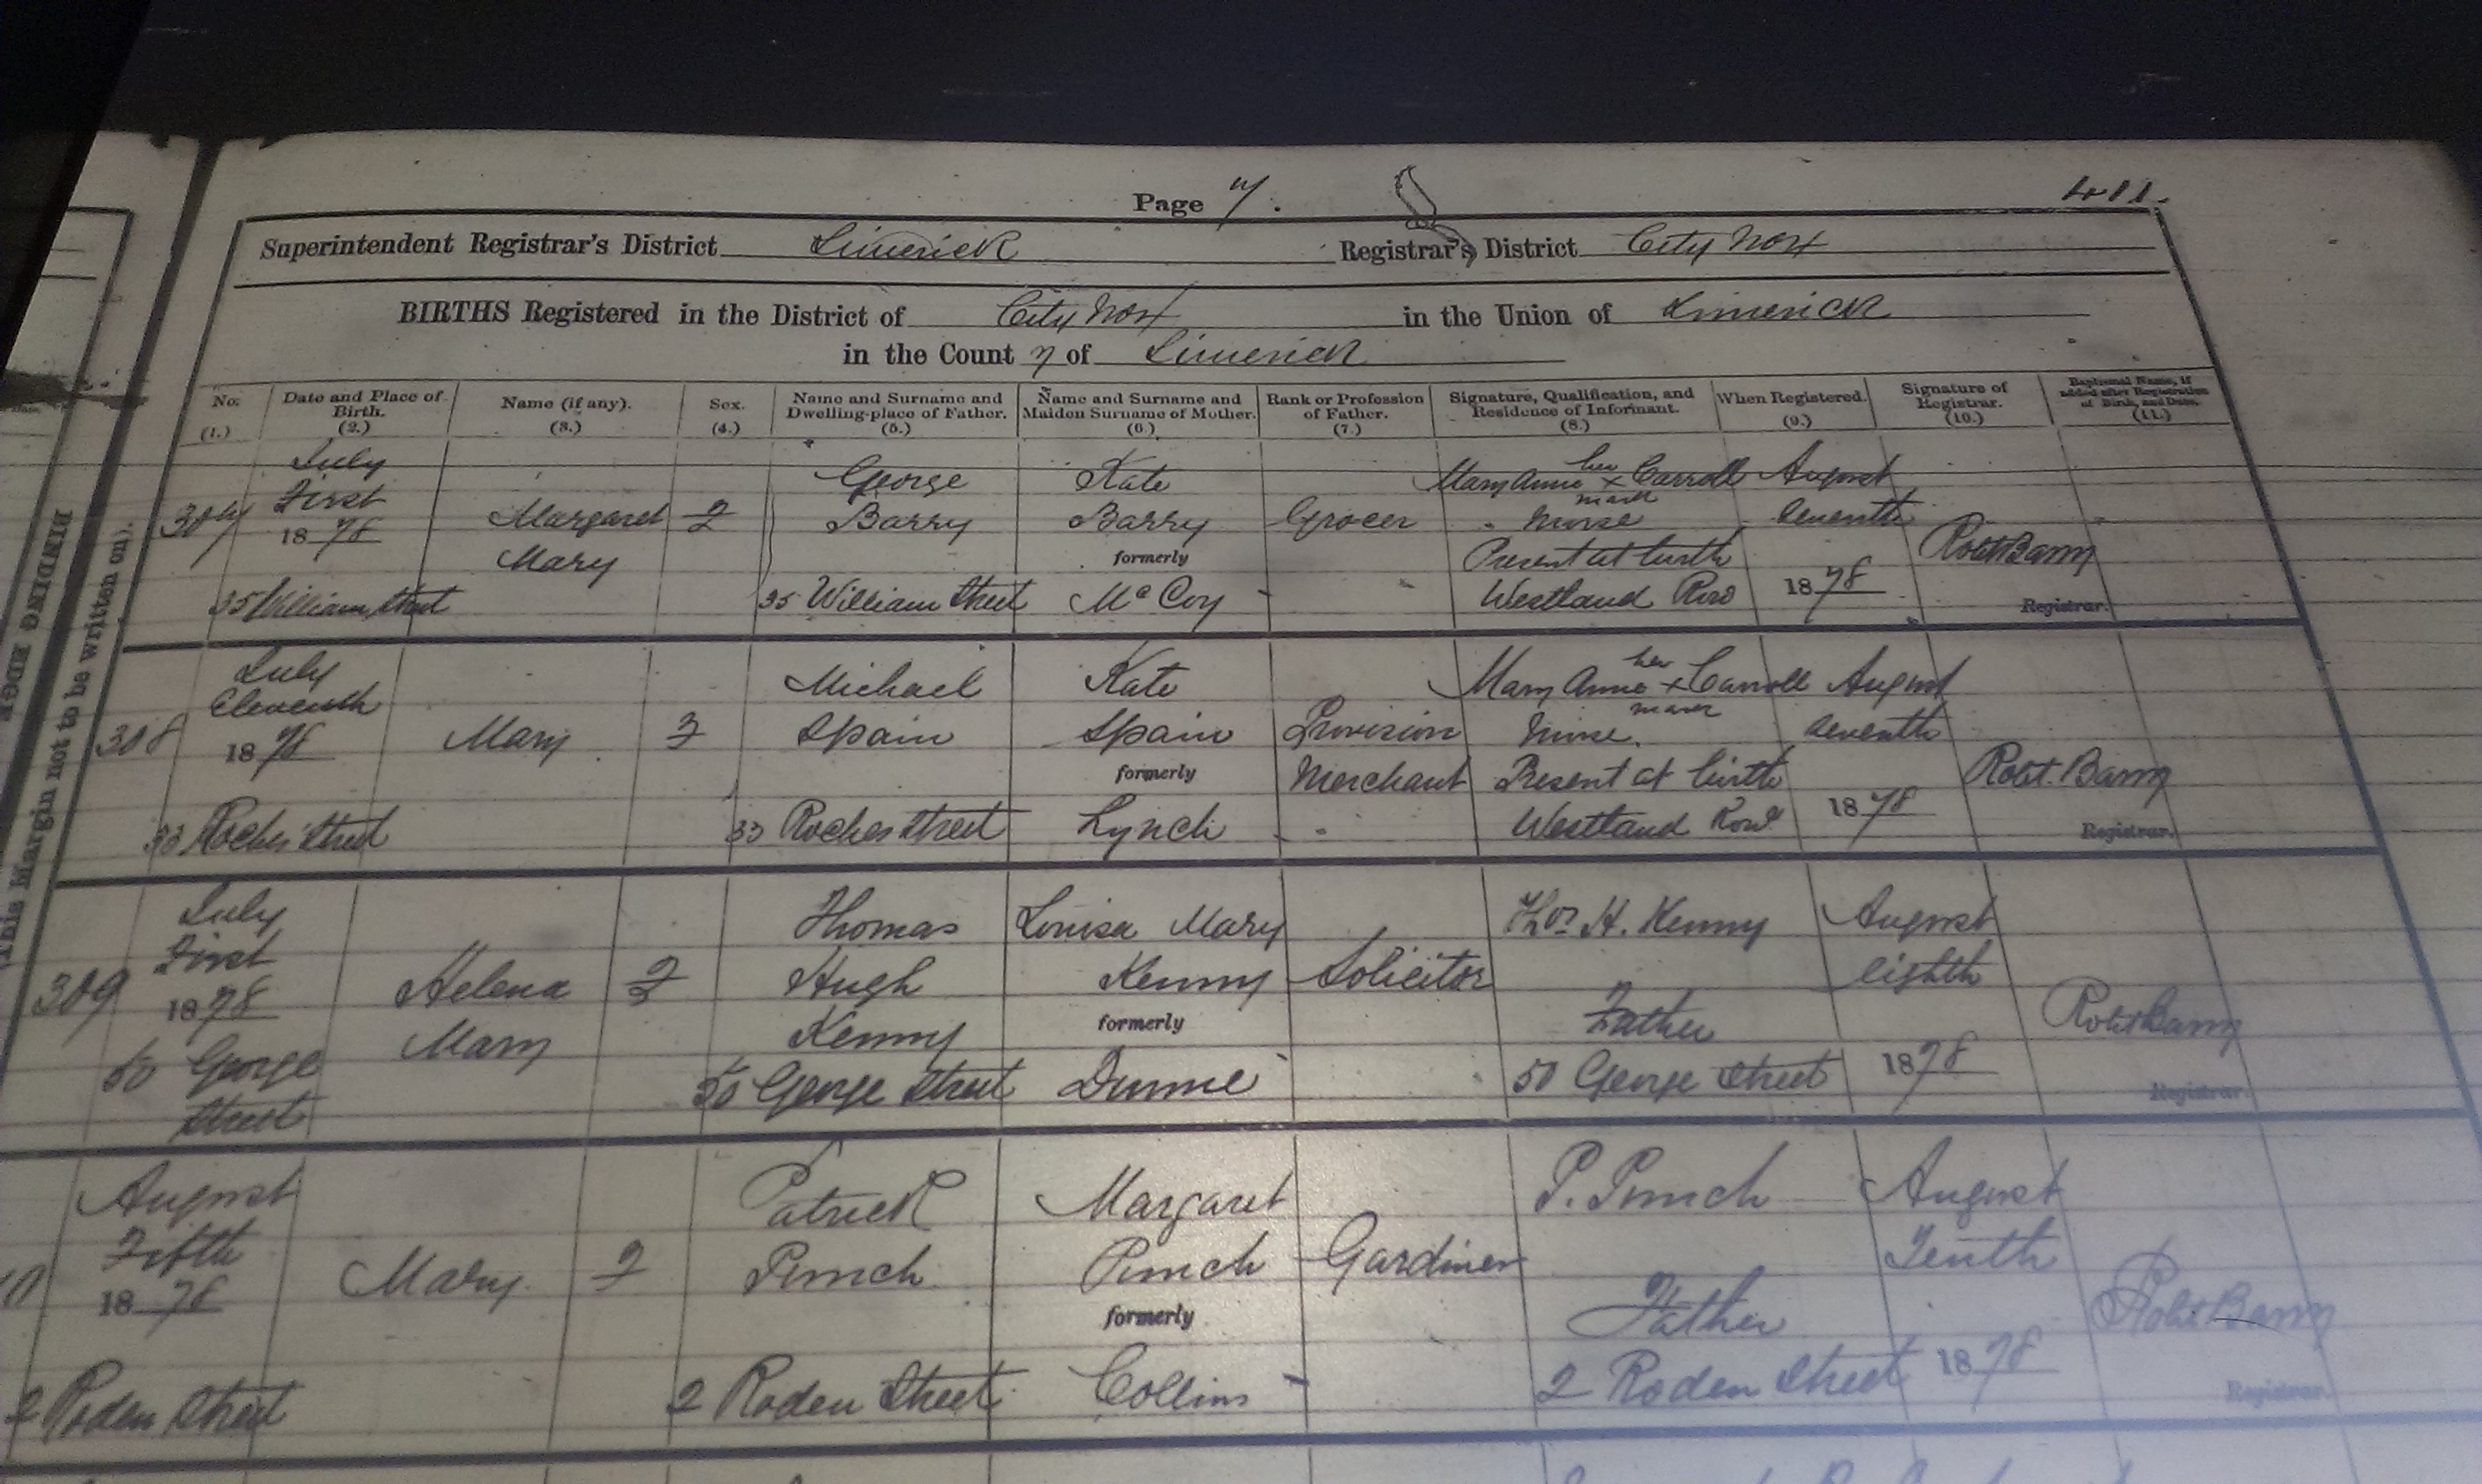 Page 7.
411.
Superintendent Registrar's District Limerick Registrar's District City No 4
BIRTHS Registered in the District of City No 4 in the Union of Limerick
in the County of Limerick
No. (1.) Date and Place of Birth. (2.) Name (if any). (3.) Sex. (4.) Name and Surname and Dwelling-place of Father. (5.) Name and Surname and Maiden Surname of Mother. (6.) Rank or Profession of Father. (7.) Signature, Qualification, and Residence of Informant. (8.) When Registered. (9.) Signature of Registrar. (10.) Baptismal Name, if added after Registration of Birth, and Date. (11.)
July George Kate Mary Anne her x mark Carroll August
307 First 1878 Margaret F Barry Barry Grocer Nurse Seventh
Mary formerly Present at birth Robt Barry
35 William Street 35 William Street McCoy Westland Row 1878 Registrar.
July Michael Kate Mary Anne her x mark Carroll August
Eleventh
308 1878 Mary F Spain Spain Provision Nurse. Seventh
formerly Merchant Present at birth Robt. Barry
33 Roches Street 33 Roches Street Lynch Westland Row 1878 Registrar.
July Thomas Louisa Mary Thos H. Kenny August
First
309 1878 Helena F Hugh Kenny Solicitor eighth
Mary Kenny formerly Father Robt Barry
50 George Street 50 George Street Dunne 50 George Street 1878 Registrar.
August Patrick Margaret P. Pinch August
Fifth
10 1878 Mary F Pinch Pinch Gardiner Tenth
formerly Father Robt Barry
2 Roden Street 2 Roden Street Collins 2 Roden Street 1878 Registrar.
This Margin not to be written on).
BINDING EDGE